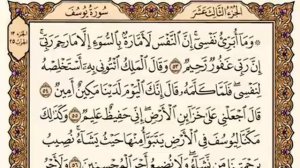 الجزء الثالث عشر
سورة يوسف
۞ وَمَآ أُبَرِّئُ نَفْسِىٓ إِنَّ ٱلنَّفْسَ لَأَمَّارَةٌۢ بِٱلسُّوٓءِ إِلَّا مَا رَحِمَ رَبِّىٓ
إِنَّ رَبِّى غَفُورٌ رَّحِيمٌ ٥٣ وَقَالَ ٱلْمَلِكُ ٱئْتُونِى بِهِۦٓ أَسْتَخْلِصْهُ
لِنَفْسِى فَلَمَّا كَلَّمَهُۥ قَالَ إِنَّكَ ٱلْيَوْمَ لَدَيْنَا مَكِينٌ أَمِينٌ ٥٤
قَالَ ٱجْعَلْنِى عَلَىٰ خَزَآئِنِ ٱلْأَرْضِ إِنِّى حَفِيظٌ عَلِيمٌ ٥٥ وَكَذَٰلِكَ
مَكَّنَّا لِيُوسُفَ فِى ٱلْأَرْضِ يَتَبَوَّأُ مِنْهَا حَيْثُ يَشَآءُ نُصِيبُ
بِرَحْمَتِنَا مَن نَّشَآءُ وَلَا نُضِيعُ أَجْرَ ٱلْمُحْسِنِينَ ٥٦ وَلَأَجْرُ